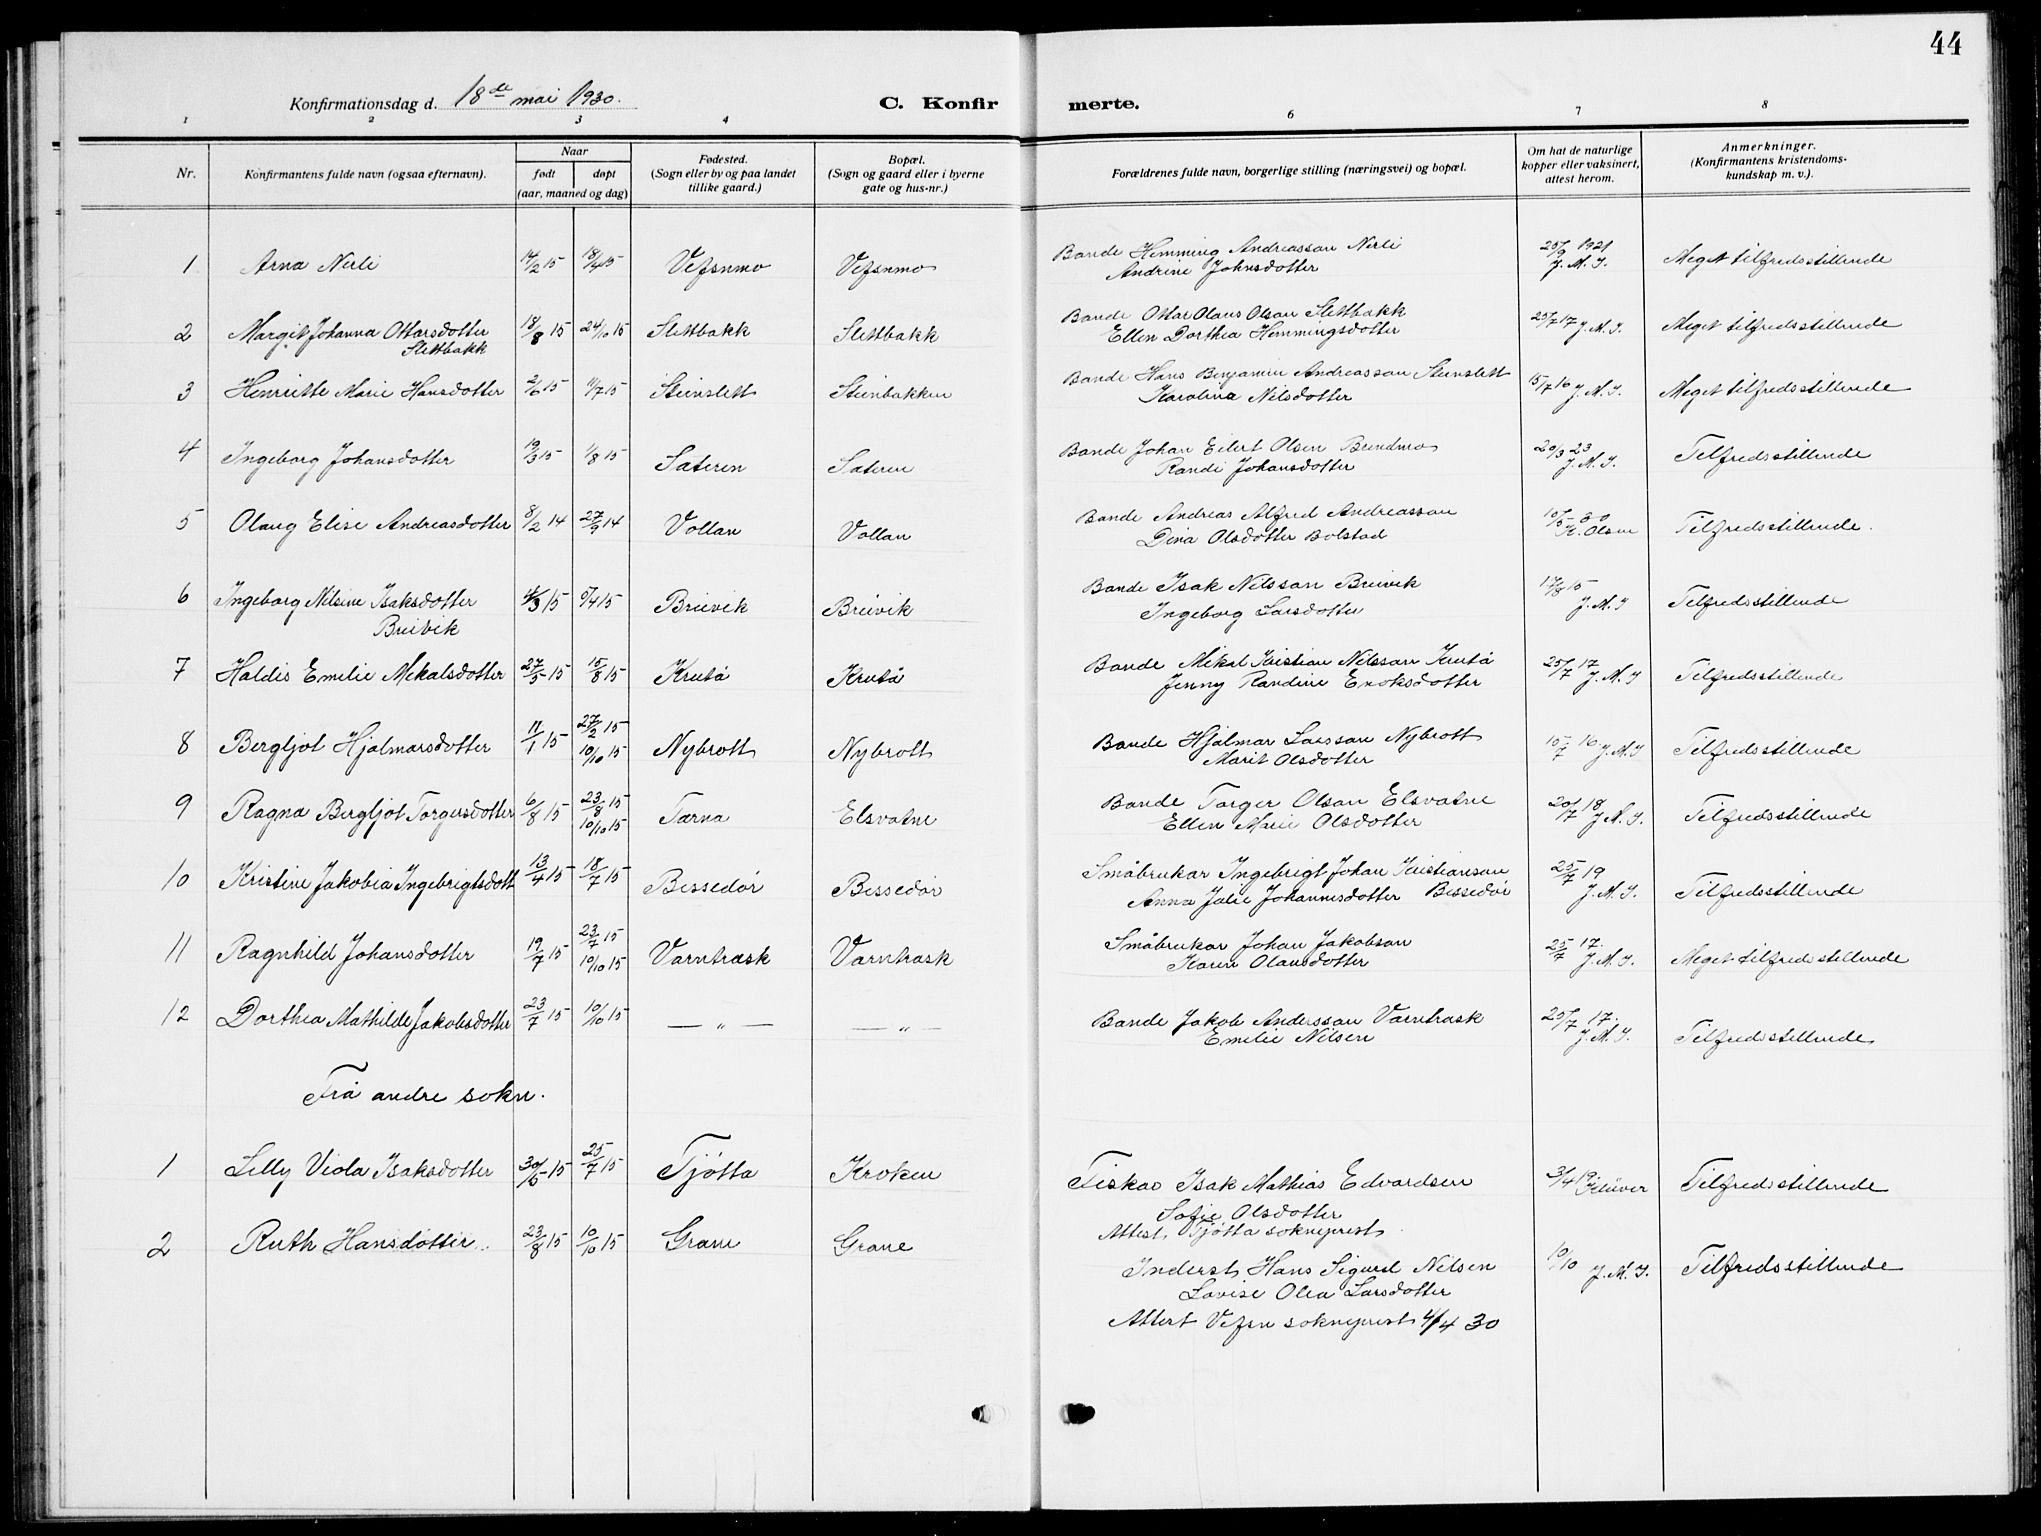 44
Konfirmationsdag d. 18de mai 1930. C. Konfir merte.
1 2 3 4 6 7 8
Nr. Konfirmantens fulde navn (ogsaa efternavn). Naar født døpt (aar, maaned og dag) Fødested. (Sogn eller by og paa landet tillike gaard.) Bopæl. (Sogn og gaard eller i byerne gate og hus-nr.) Forældrenes fulde navn, borgerlige stilling (næringsvei) og bopæl. Om hat de naturlige kopper eller vaksinert, attest herom. Anmerkninger. (Konfirmantens kristendoms-kundskap m. v.).
1 Arna Nerli 14/2 15 18/4 15 Vefsnmo Vefsnmo Bonde Hemming Andreasson Nerli 25/9 1921 Meget tilfredsstillende
Andrine Johnsdotter J. M. I.
2 Margit Johanna Ottarsdotter 18/8 15 24/10 15 Slettbakk Slettbakk Bonde Ottar Olaus Olson Slettbakk 25/7 17 J. M. I. Meget tilfredsstillende
Slettbakk Ellen Dorthea Hemmingsdotter
3 Henriette Marie Hansdotter 2/6 15 11/7 15 Steinslett Steinbakken Bonde Hans Benjamin Andreasson Steinslett 15/7 16 J. M. I. Meget tilfredsstillende
Karolina Nilsdotter
4 Ingeborg Johansdotter 19/3 15 1/8 15 Sæteren Sæteren Bonde Johan Eilert Olsen Brendmo 20/3 23 Tilfredsstillende
Randi Johansdotter J. M. I.
5 Olaug Elise Andreasdotter 8/2 14 27/9 14 Vollan Vollan Bonde Andreas Alfred Andreasson 10/5 30 Tilfredsstillende.
Dina Olsdotter Bolstad K. Olsen
6 Ingeborg Nilsine Isaksdotter 4/3 15 5/4 15 Breivik Breivik Bonde Isak Nilsson Breivik 17/8 15 Tilfredsstillende
Breivik Ingeborg Larsdotter J. M. I
7 Haldis Emelie Mikalsdotter 27/5 15 15/8 15 Krutå Krutå Bonde Mikal Kristian Nilsson Krutå 25/7 17 J. M. I Tilfredsstillende
Jenny Randine Enoksdotter
8 Bergljot Hjalmarsdotter 11/1 15 27/2 15 10/10 15 Nybrott Nybrott Bonde Hjalmar Larsson Nybrott 15/7 16 J. M. I Tilfredsstillende
Marit Olsdotter
9 Ragna Bergljot Torgersdotter 6/8 15 23/8 15 10/10 15 Tærna Elsvatne Bonde Torger Olson Elsvatne 20/7 18 J. M. I. Tilfredsstillende
Ellen Marie Olsdotter
10 Kristine Jakobia Ingebrigtsdott 13/4 15 18/7 15 Bessedør Bessedør Småbrukar Ingebrigt Johan Kristianson 25/7 19 Tilfredsstillende
Anna Julie Johannesdotter Bessedør J. M. I.
11 Ragnhild Johansdotter 19/7 15 23/7 15 10/10 15 Varntræsk Varntræsk Småbrukar Johan Jakobson 25/7 17. Meget tilfredsstillende
Karen Olausdotter J. M. I.
12 Dorthea Mathilde Jakobsdotter 23/7 15 10/10 15 — " — — " — Bonde Jakob Andersson Varntræsk 25/7 17. Tilfredsstillende
Emilie Nilsen J. M. I.
Frå andre sokn.
1 Lilly Viola Isaksdotter 30/5 15 25/7 15 Tjøtta Kroken Fiskar Isak Mathias Edvardsen 3/4 19 Klüver Tilfredsstillende
Sofie Olsdotter
Attest Tjøtta sokneprest
2 Ruth Hansdotter. 23/8 15 10/10 15 Grane Grane Inderst Hans Sigurd Nilsen 10/10 J. M. I. Tilfredsstillende
Lovise Olea Larsdotter
Attest Vefsn sokneprest 4/4 30